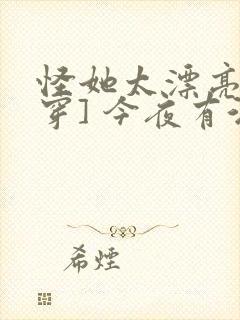 怪她太漂亮
穿] 今夜有
希煙